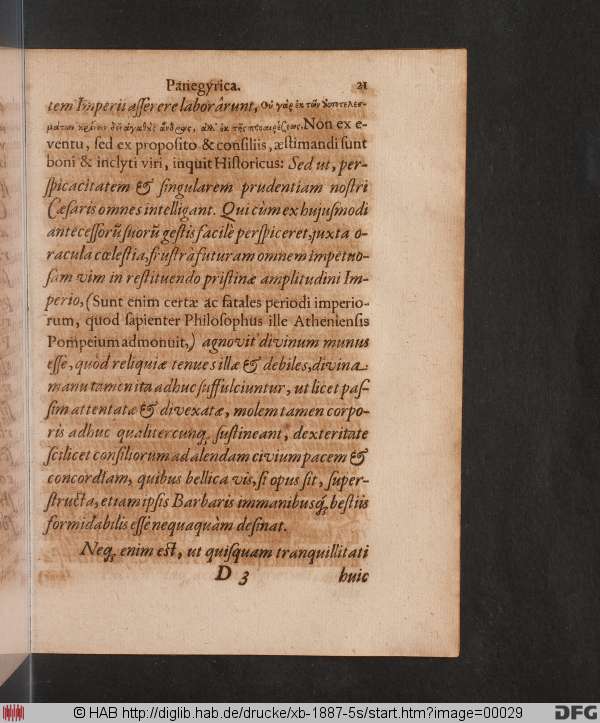 Panegyrica. 21
tem Imperii asserere laborârunt, Οὐ γάρ ἐκ τῶν
ἀνδρας, ἀλλ' ἐκ τῆς προαιρέσεως. Non ex e-
ventu, sed ex proposito & consiliis, æstimandi sunt
boni & inclyti viri, inquit Historicus: Sed ut, per-
spicacitatem & singularem prudentiam nostri
Cæsaris omnes intelligant. Qui cùm ex hujusmodi
antecessorũ suorũ gestis facilè perspiceret, juxta o-
racula cœlestia, frustrà futuram omnem impetuo-
sam vim in restituendo pristinæ amplitudini Im-
perio, (Sunt enim certæ ac fatales periodi imperio-
rum, quod sapienter Philosophus ille Atheniensis
Pompeium admonuit,) agnovit divinum munus
esse, quòd reliquiæ tenues illæ & debiles, divina
manu tamen ita adhuc suffulciuntur, ut licet pas-
sim attentatæ & divexatæ, molem tamen corpo-
ris adhuc qualitercunq; sustineant, dexteritate
scilicet consiliorum ad alendam civium pacem &
concordiam, quibus bellica vis, si opus sit, super-
structa, etiam ipsis Barbaris immanibusq; bestiis
formidabilis esse nequaquàm desinat.
Neq; enim est, ut quisquam tranquillitati
D 3 huic
© HAB http://diglib.hab.de/drucke/xb-1887-5s/start.htm?image=00029
DFG